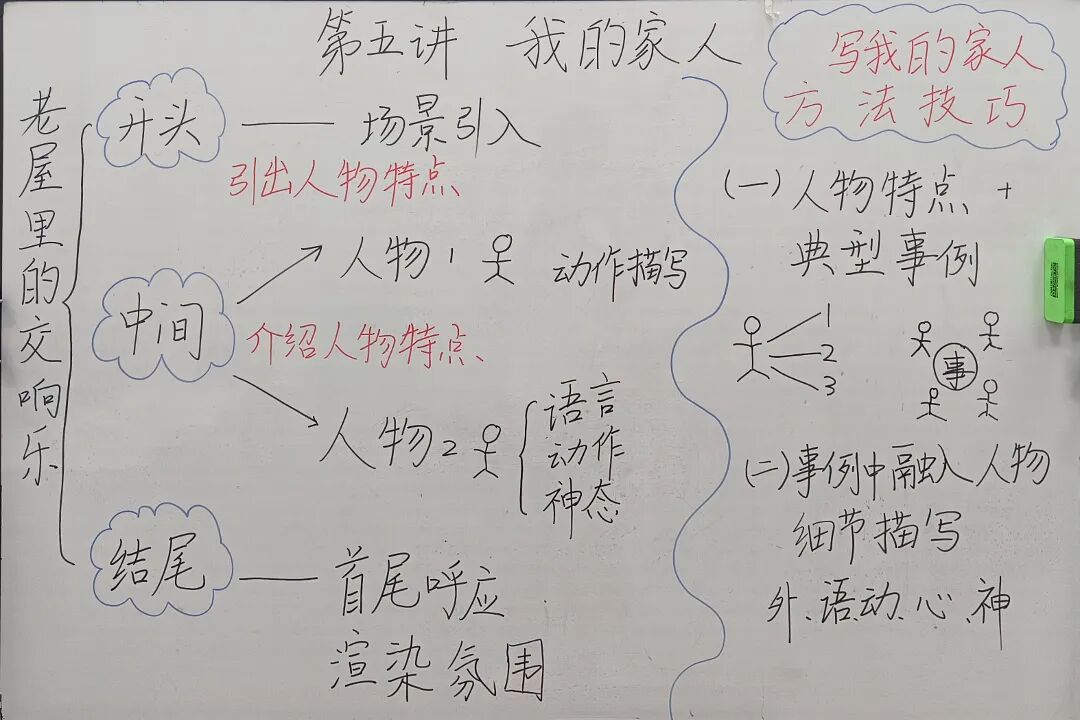 第五讲 我的家人
老屋里的交响乐
开头
场景引入
引出人物特点
中间
人物1
动作描写
介绍人物特点、
人物2
语言
动作
神态
结尾
首尾呼应
渲染氛围
写我的家人
方法技巧
(一)人物特点 +
典型事例
1
2
3
事
(二)事例中融入人物
细节描写
外、语、动、心、神